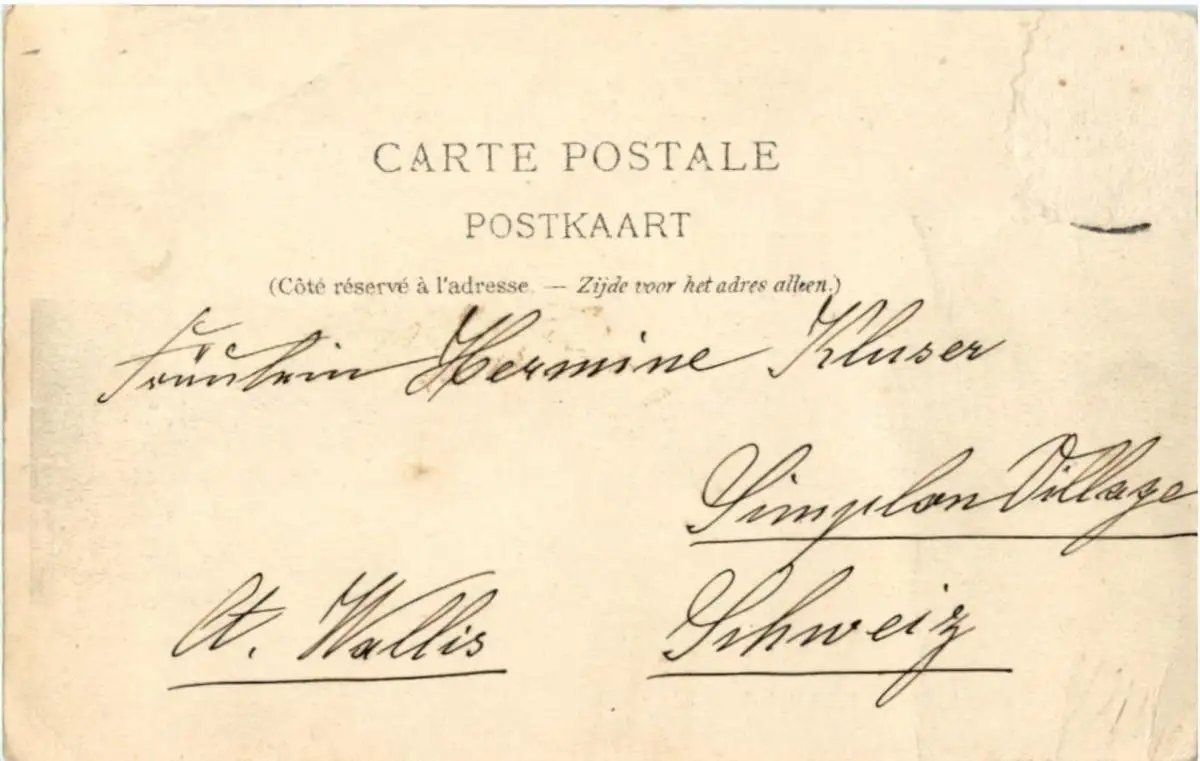 CARTE POSTALE
POSTKAART
(Côté réservé à l'adresse. — Zijde voor het adres alleen.)
Fräulein Hermine Kluser
Simplon Village
Ct. Wallis Schweiz